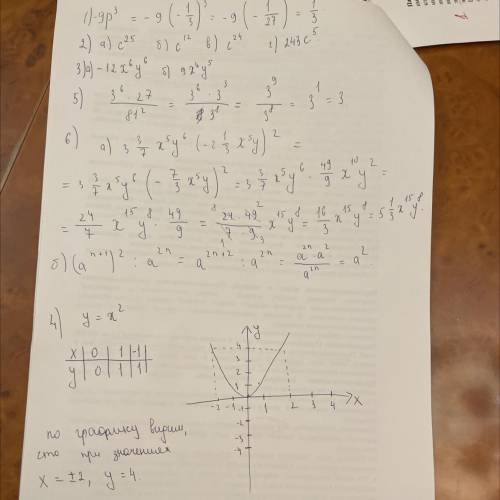 1) -9p³ = -9(-1/3)³ = -9(-1/27) = 1/3
2) а) c²⁵ б) c¹² в) c²⁴ г) 243c⁵
3) а) -12x⁶y⁶ б) 9x⁴y⁵
5) 3⁶·27/81² = 3⁶·3³/3⁸ = 3⁹/3⁸ = 3¹ = 3
6) а) 3 3/7 x⁵y⁶(-2 1/3 x⁵y)² =
= 3 3/7 x⁵y⁶(-7/3 x⁵y)² = 3 3/7 x⁵y⁶ · 49/9 x¹⁰y² =
= 24/7 x¹⁵y⁸ · 49/9 = 24·49/7·9 x¹⁵y⁸ = 16/3 x¹⁵y⁸ = 5 1/3 x¹⁵y⁸
б) (aⁿ⁺¹)² : a²ⁿ = a²ⁿ⁺² : a²ⁿ = a²ⁿ·a²/a²ⁿ = a².
4) y = x²
x 0 1 -1
y 0 1 1
y
4
3
2
1
-2 -1 1 2 3 4 x
-1
-2
-3
-4
по графику видим,
что при значениях
x = ±2, y = 4.